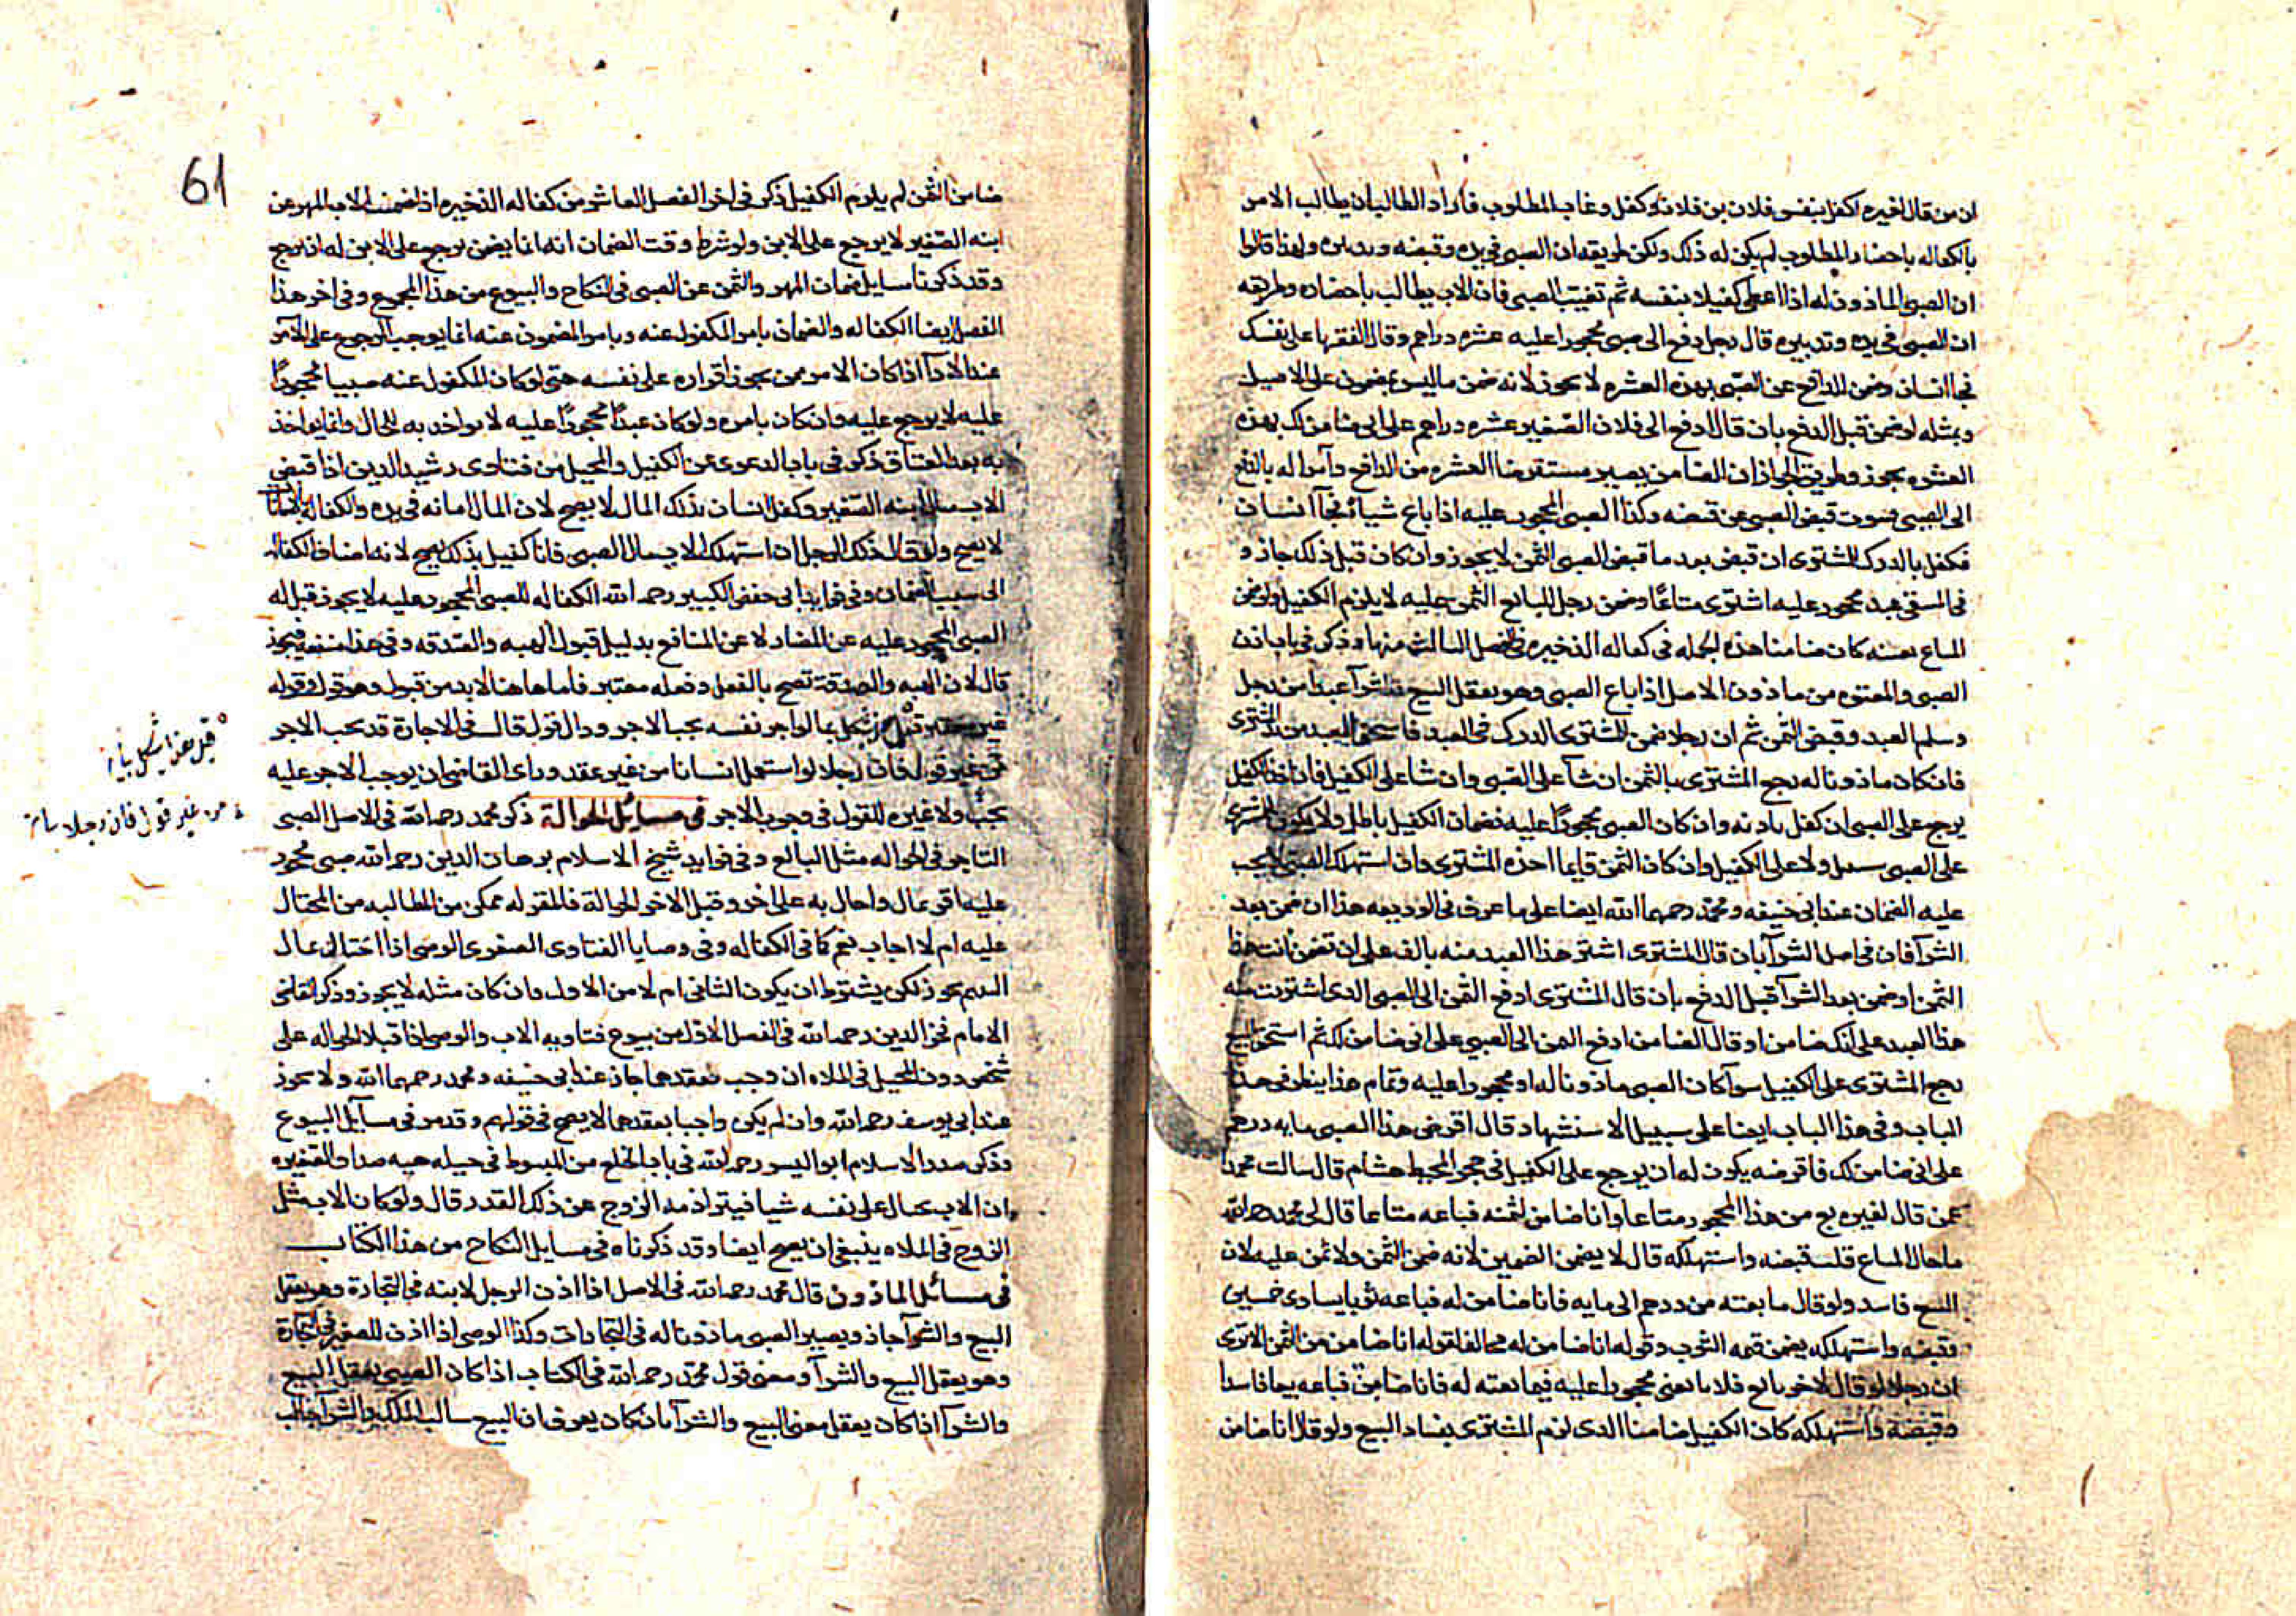 ان من قال لغيره اكفل بنفس فلان بن فلان فكفل وغاب المطلوب فاراد الطالب ان يطالب الامر
بالكفاله باحضار المطلوب لم يكن له ذلك ولكن طريقه ان الصبي في يده وقبضه وتدبيره ولهذا قالوا
ان الصبي الماذون له اذا اعطى كفيلا بنفسه ثم تغيب الصبي فان الاب يطالب باحضاره وطريقه
ان الصبي في يده وتدبيره قال رجل دفع الى صبي محجورا عليه عشره دراهم وقال انفقها على نفسك
فجا انسان وضمن للدافع عن الصبي بهذه العشره لا يجوز لانه ضمن ما ليس بمضمون على الاصيل
وبمثله لو ضمن قبل الدفع بان قال ادفع الى فلان الصغير عشره دراهم على اني ضامن لك بهذه
العشره يجوز وطريق الجواز ان الضامن يصير مستقرضا العشره من الدافع وآمرا له بالدفع
الى الصبي فينوب قبض الصبي عن قبضه وكذا الصبي المحجور عليه اذا باع شيائ فجآ انسان
فكفل بالدرك للمشترى ان قبض بعد ما قبض الصبي الثمن لا يجوز وان كان قبل ذلك جاز و
في المنتقى عبد محجور عليه اشترى متاعًا وضمن رجل للبايع الثمن عليه لا يلزم الكفيل ولو ضمن
المتاع بعينه كان ضامنا هذه الجمله في كفاله الذخيره في الفصل الثالث منها وذكر في باب اذن
الصبي والمعتوه من ماذون الاصل اذا باع الصبي وهو يعقل البيع والشرآ عبدا من رجل
وسلم العبد وقبض الثمن ثم ان رجلا ضمن للمشترى الدرك في العبد فاستحق العبد من المشترى
فان كان ماذونا له رجع المشترى بالثمن ان شآ على الصبي وان شا على الكفيل فان اخذ الكفيل
يرجع على الصبي ان كفل باذنه وان كان الصبي محجورًا عليه فضمان الكفيل باطل ولا يكون للمشترى
على الصبي سبيل ولا على الكفيل وان كان الثمن قايما اخذه المشترى وان استهلكه الصبي لا يجب
عليه الضمان عند ابي حنيفه ومحمد رحمهما الله ايضا على ما عرف في الوديعه هذا ان ضمن بعد
الشرآ فان في اصل الشرآ بان قال للمشترى اشتر هذا العبد منه بالف على ان تضمن انت هذا
الثمن او ضمن بعد الشرآ قبل الدفع بان قال المشترى ادفع الثمن الى الصبي الذي اشتريت منه
هذا العبد على انك ضامن او قال الضامن ادفع الثمن الى الصبي على اني ضامن لك ثم استحق المبيع
رجع المشترى على الكفيل سوآ كان الصبي ماذونا له او محجورا عليه وتمام هذا ينظر في هذا
الباب وفي هذا الباب ايضا على سبيل الاستشهاد قال اقرض هذا الصبي مايه درهم
على اني ضامن لك فاقرضه يكون له ان يرجع على الكفيل في حجر المحيط هشام قال سالت محمدا
عمن قال لغيره بع من هذا المحجور متاعا وانا ضامن لثمنه فباعه متاعا قال لي محمد رحمه الله
ما حال المتاع قلت قبضه واستهلكه قال لا يضمن الضمين لانه ضمن الثمن ولا ثمن عليه لان
البيع فاسد ولو قال ما بعته من درهم الى مايه فانا ضامن له فباعه ثوبا يساوى خمسين
وقبضه واستهلكه يضمن قيمه الثوب وقوله انا ضامن له مخالف لقوله انا ضامن من الثمن الا ترى
ان رجلا لو قال لاخر بايع فلانا يعني محجورا عليه فيما بعته له فانا ضامن فباعه بيعا فاسدا
وقبضه واستهلكه كان الكفيل ضامنا الذى لزم المشترى بفساد البيع ولو قال انا ضامن
61
ضامن الثمن لم يلزم الكفيل ذكر في اخر الفصل العاشر من كفاله الذخيره اذا ضمن الاب المهر عن
ابنه الصغير لا يرجع على الابن ولو شرط وقت الضمان انه انما يضمن ليرجع على الابن له ان يرجع
وقد ذكرنا مسايل ضمان المهر والثمن عن الصبي في النكاح والبيوع من هذا المجموع وفي اخر هذا
الفصل ايضا الكفاله والضمان بامر المكفول عنه وبامر المضمون عنه انما يوجب الرجوع على الآمر
عند الادآ اذا كان الامر ممن يجوز اقراره على نفسه حتى لو كان المكفول عنه صبيا محجورًا
عليه لا يرجع عليه وان كان بامره ولو كان عبدًا محجورًا عليه لا يواخذ به للحال وانما يواخذ
به بعد العتاق ذكر في باب الدعوى عن الكفيل والمحيل من فتاوى رشيد الدين اذا قبض
الاب مال ابنه الصغير وكفل انسان بذلك المال لا يصح لان المال امانه في يده والكفاله بالامانات
لا يصح ولو قال ذلك الرجل ان استهلك الاب مال الصبي فانا كفيل بذلك يصح لانه اضاف الكفاله
الى سبب الضمان وفي فوايد ابي حفص الكبير رحمه الله الكفاله للصبي المحجور عليه لا يجوز قيل له
الصبي المحجور عليه عن المضار لا عن المنافع بدليل قبول الهبه والصدقه وفي هذا منفعه فيجوز
قال لان الهبه والصدقة تصح بالفعل وفعله معتبر فاما هاهنا لابد من قبول وهو قول وقوله
غير معتبر قيل يشكل بما لو اجر نفسه يجب الاجر وذا القول قال في الاجارة قد يجب الاجر
من غير قول فان رجلا لو استعمل انسانا من غير عقد وراى القاضي ان يوجب الاجر عليه
يجب ولا غيره للقول في وجوب الاجر في مسائل الحوالة ذكر محمد رحمه الله في الاصل الصبي
التاجر في الحواله مثل البالغ وفي فوايد شيخ الاسلام برهان الدين رحمه الله صبي محجور
عليه اقر بمال واحال به على اخر وقبل الاخر الحوالة فالمقر له ممكن من المطالبه من المحتال
عليه ام لا اجاب نعم كما في الكفاله وفي وصايا الفتاوى الصغرى الوصي اذا احتال بمال
اليتيم يجوز لكن يشترط ان يكون الثاني املا من الاول وان كان مثله لا يجوز وذكر القاضي
الامام فخر الدين رحمه الله في الفصل الاول من بيوع فتاويه الاب والوصي اذا قبلا الحواله على
شخص دون المحيل في الملاه ان وجب بعقدهما جاز عند ابي حنيفه ومحمد رحمهما الله ولا يجوز
عند ابي يوسف رحمه الله وان لم يكن واجبا بعقدهما لا يصح في قولهم وقد مر في مسايل البيوع
وذكر صدر الاسلام ابو اليسر رحمه الله في باب الخلع من المبسوط في حيله هبه صداق الصغيره
ان الاب يحتال على نفسه شيا فيترا ذمه الزوج عن ذلك القدر قال ولو كان الاب مثل
الزوج في الملاه ينبغي ان يصح ايضا وقد ذكرناه في مسايل النكاح من هذا الكتاب
في مسائل الماذون قال محمد رحمه الله في الاصل اذا اذن الرجل لابنه في التجارة وهو يعقل
البيع والشرآ جاز ويصير الصبي ماذونا له في التجارات وكذا الوصي اذا اذن للصغير في التجارة
وهو يعقل البيع والشرآ ومعنى قول محمد رحمه الله في الكتاب اذا كان الصبي يعقل البيع
والشرآ اذا كان يعقل معنى البيع والشرآ بان كان يعرف ان البيع سالب للملك والشرآ جالب
قيل هذا يشكل
من غير قول فان رجلا